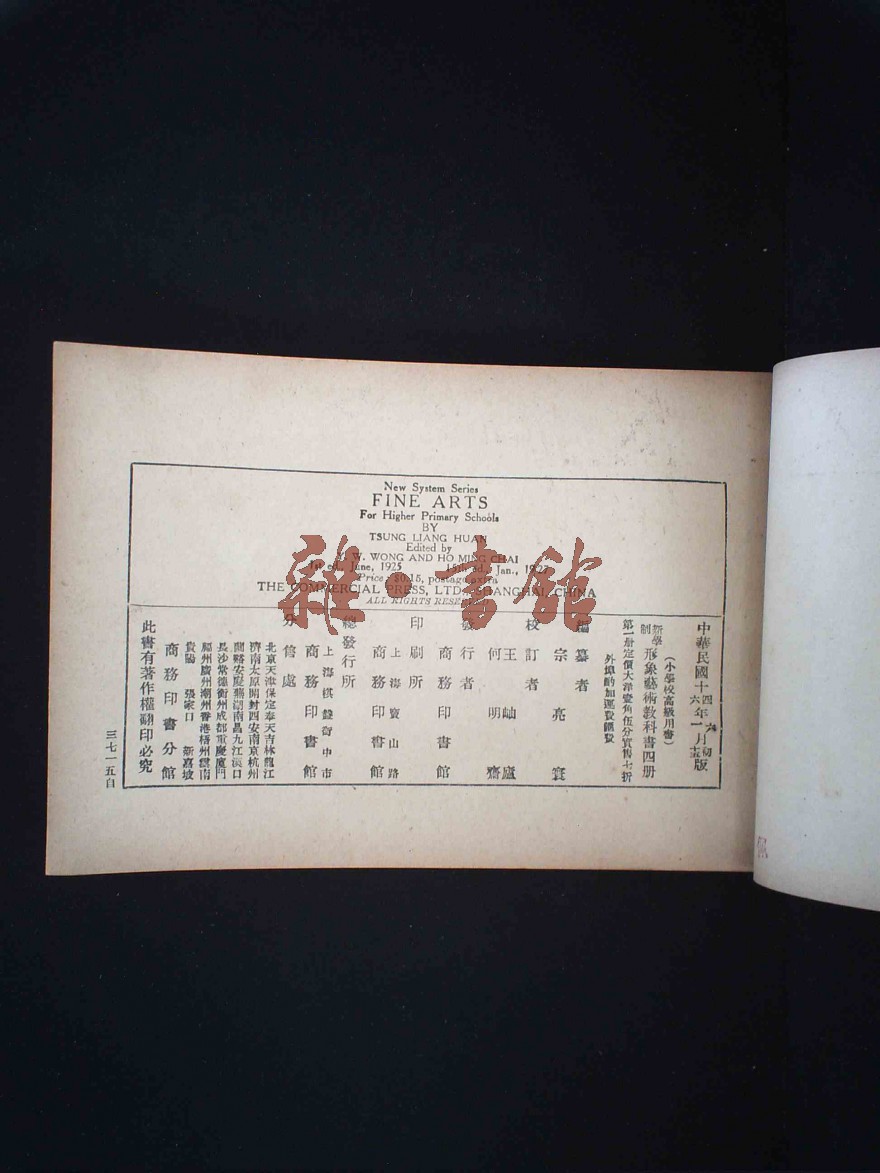 New System Series
FINE ARTS
For Higher Primary Schools
BY
TSUNG LIANG HUAN
Edited by
W. WONG AND HO MING CHAI
1st ed., June, 1925 15th ed., Jan., 1927
Price: $0.15, postage extra
THE COMMERCIAL PRESS, LTD., SHANGHAI, CHINA
ALL RIGHTS RESERVED
中華民國十四年六月初版
六年一月十五版
(小學校高級用書)
新學制形象藝術教科書四册
第一册定價大洋壹角伍分實售七折
外埠酌加運費匯費
編纂者 宗亮寰
校訂者 王岫廬
何明齋
發行者 商務印書館
印刷所 上海寶山路
商務印書館
總發行所 上海棋盤街中市
商務印書館
分售處
北京天津保定奉天吉林龍江
濟南太原開封西安南京杭州
蘭谿安慶蕪湖南昌九江漢口
長沙常德衡州成都重慶廈門
福州廣州潮州香港梧州雲南
貴陽 張家口 新嘉坡
商務印書分館
此書有著作權翻印必究
三七一五自
雜·書館